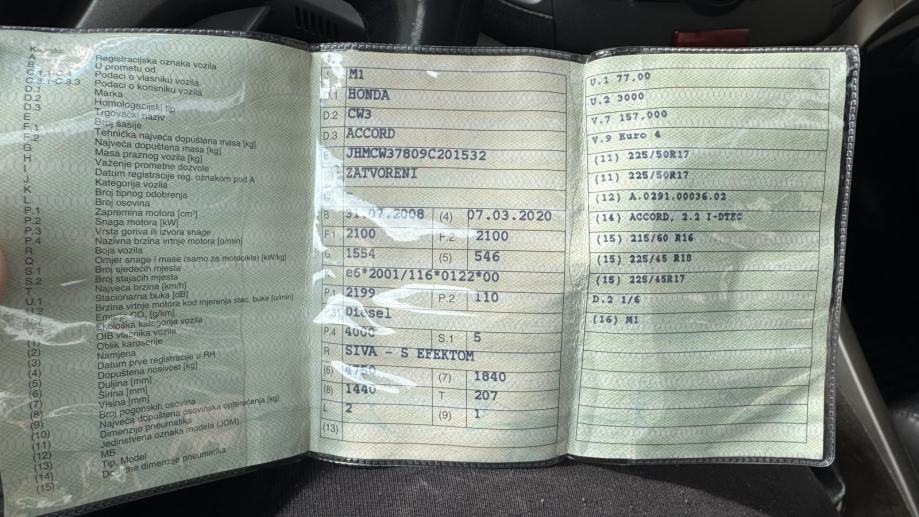 Registracijska oznaka vozila
U prometu od
Podaci o vlasniku vozila
C.3.1-C.3.3 Podaci o korisniku vozila
D.1 Marka
D.2 Homologacijski tip
D.3 Trgovački naziv
E Broj šasije
F.1 Tehnička najveća dopuštena masa [kg]
F.2 Najveća dopuštena masa [kg]
G Masa praznog vozila [kg]
H Važenje prometne dozvole
I Datum registracije reg. oznakom pod A
J Kategorija vozila
K Broj tipnog odobrenja
L Broj osovina
P.1 Zapremina motora [cm³]
P.2 Snaga motora [kW]
P.3 Vrsta goriva ili izvora snage
P.4 Nazivna brzina vrtnje motora [o/min]
R Boja vozila
Q Omjer snage i mase (samo za motocikle) [kW/kg]
S.1 Broj sjedećih mjesta
S.2 Broj stajaćih mjesta
T Najveća brzina [km/h]
U.1 Stacionarna buka [dB]
Brzina vrtnje motora kod mjerenja stac. buke [o/min]
CO₂ [g/km]
Ekološka kategorija vozila
OIB vlasnika vozila
Oblik karoserije
(2) Namjena
(3) Datum prve registracije u RH
(4) Dopuštena nosivost [kg]
(5) Duljina [mm]
(6) Širina [mm]
(7) Visina [mm]
(8) Broj pogonskih osovina
(9) Najveća dopuštena osovinska opterećenja [kg]
(10) Dimenzije pneumatika
(11) Jedinstvena oznaka modela (JOM)
(12) MB
(13) Tip, Model
(14) dimenzije pneumatika
(15)
J M1
D.1 HONDA
D.2 CW3
D.3 ACCORD
E JHMCW37809C201532
ZATVORENI
-
B 31.07.2008 (4) 07.03.2020
F.1 2100 F.2 2100
G 1554 (5) 546
K e6*2001/116*0122*00
P.1 2199 P.2 110
P.3 Diesel
P.4 4000 S.1 5
R SIVA - S EFEKTOM
(6) 4750 (7) 1840
(8) 1440 T 207
L 2 (9) 1
(13)
U.1 77.00
U.2 3000
V.7 157.000
V.9 Euro 4
(11) 225/50R17
(11) 225/50R17
(12) A.0291.00036.02
(14) ACCORD, 2.2 I-DTEC
(15) 215/60 R16
(15) 225/45 R18
(15) 225/45R17
D.2 1/6
(16) M1